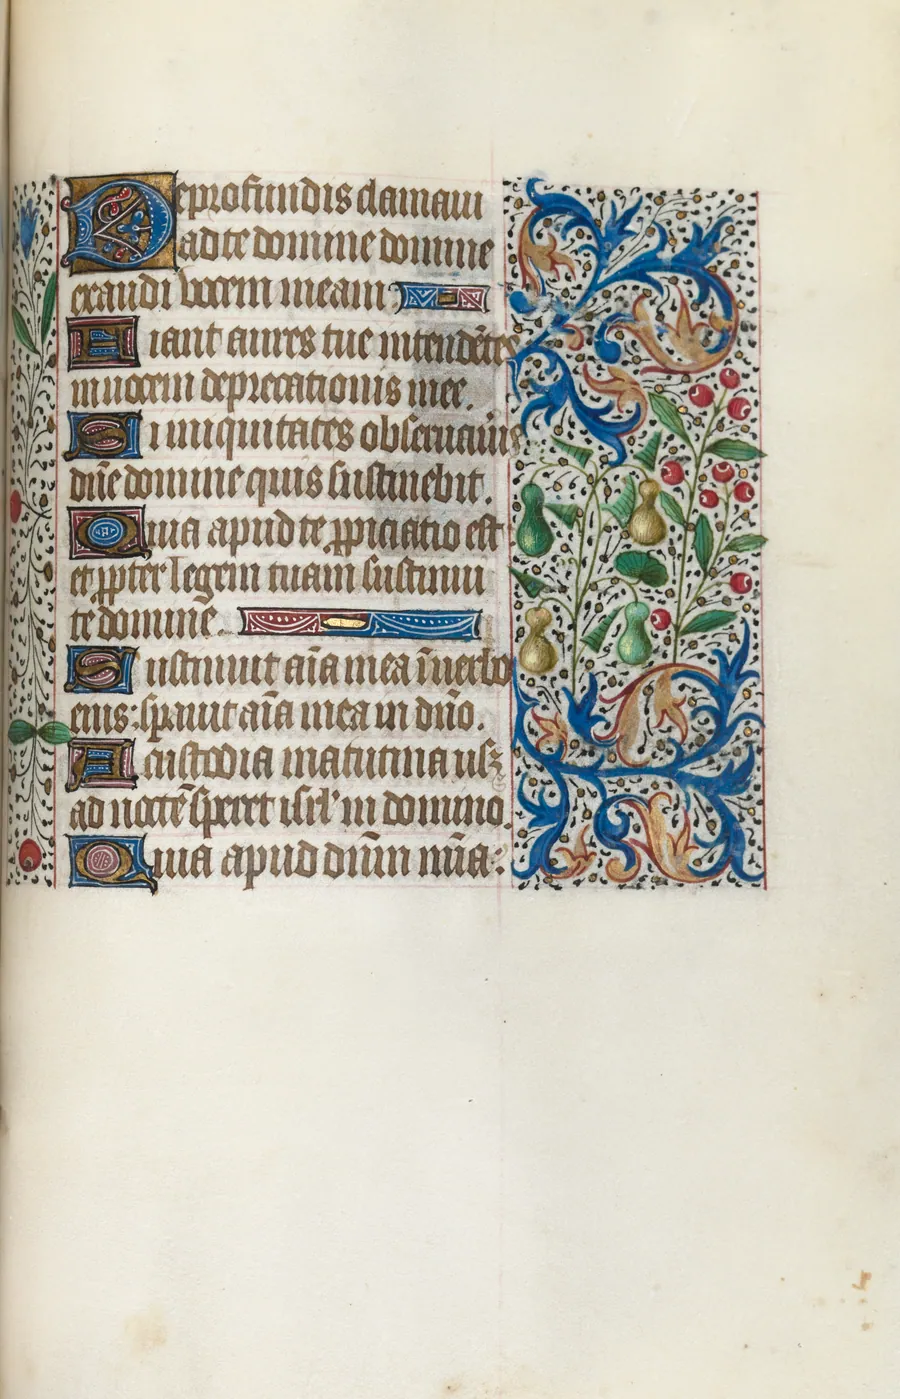 De profundis clamaui
ad te domine domine
exaudi vocem meam
Fiant aures tue intendētes
in uocem deprecationis mee.
Si iniquitates obseruaūis
dn̄e domine quis sustinebit.
Quia apud te ꝓpiciatio est
et ꝓpter legem tuam sustinui
te domine.
Sustinuit aīa mea ī uerbo
eius: sꝑauit aīa mea in dn̄o.
A custodia matutina usqꝫ
ad noctē speret isrl' in domino.
Quia apud dn̄m mīa: